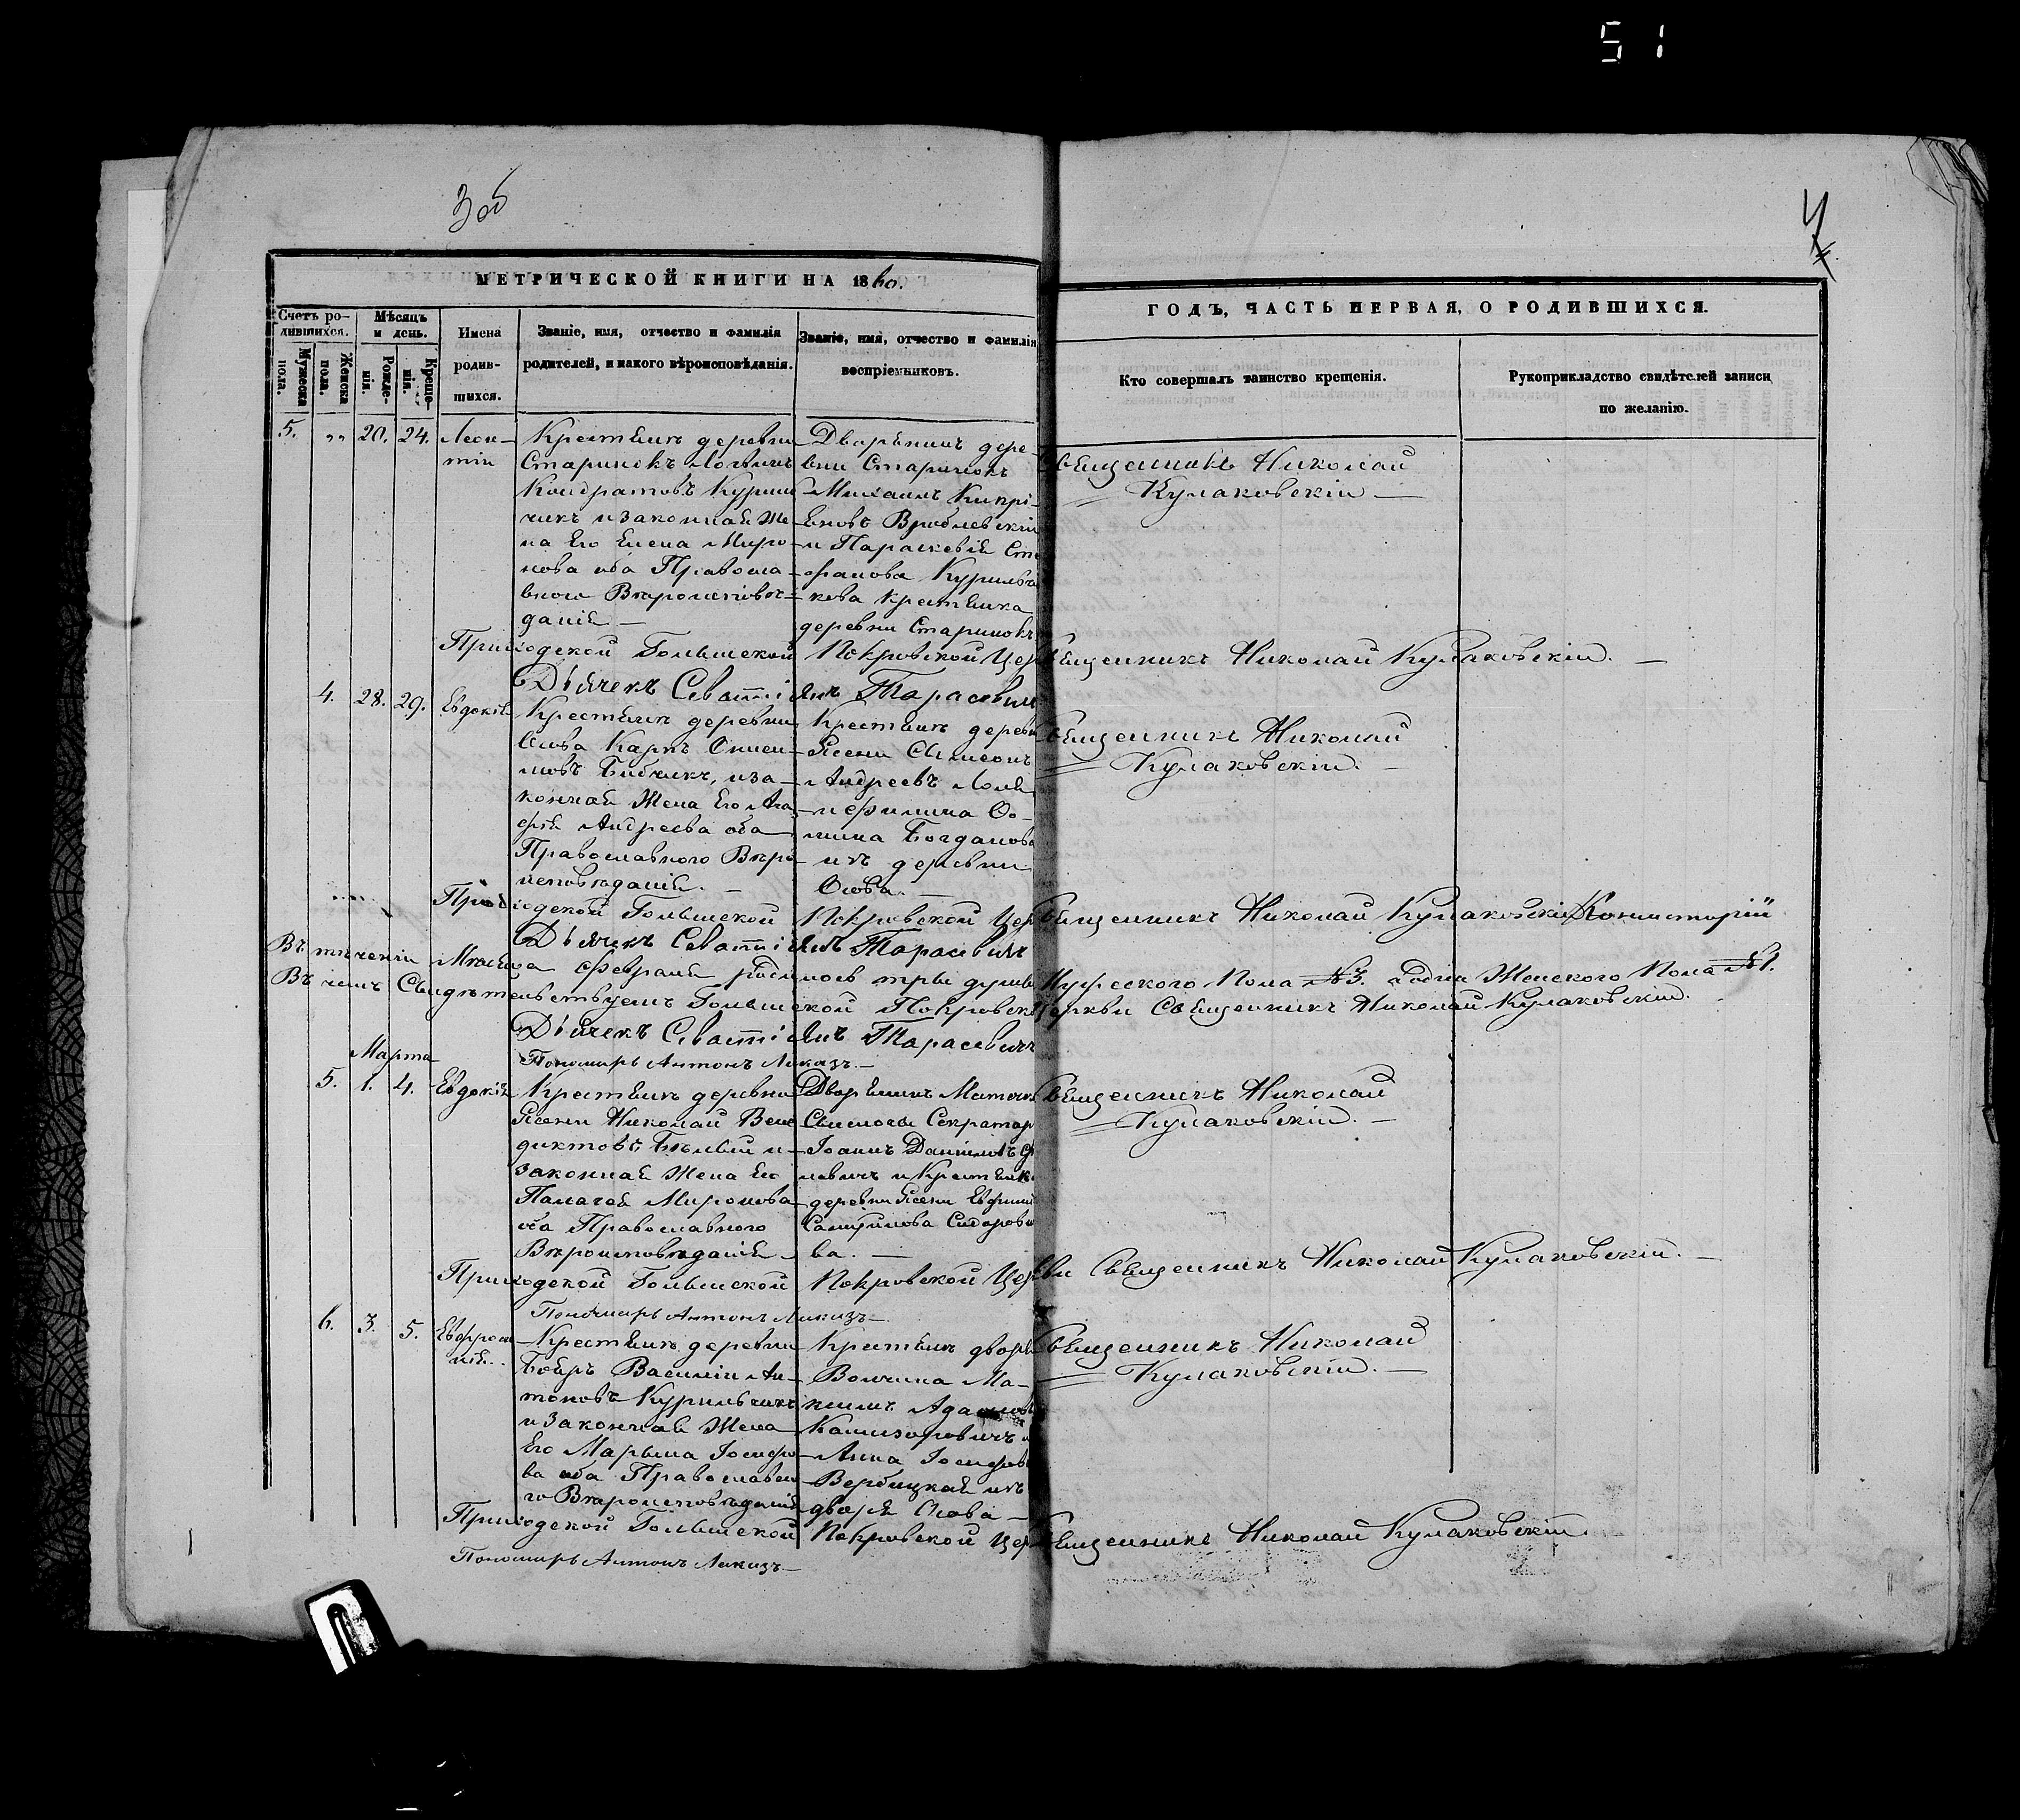 51
3об
4
МЕТРИЧЕСКОЙ КНИГИ НА 1860.
ГОДЪ, ЧАСТЬ ПЕРВАЯ, О РОДИВШИХСЯ.
Счетъ ро-
дившихся.
Мужеска
пола.
Женска
пола.
Мѣсяцъ
и день.
Рожде-
нія.
Креще-
нія.
Имена
родив-
шихся.
Званіе, имя, отчество и фамилія
родителей, и какого вѣроисповѣданія.
Званіе, имя, отчество и фамилія
воспріемниковъ.
Кто совершалъ таинство крещенія.
Рукоприкладство свидѣтелей записи
по желанію.
5. " 20. 24.
Леон-
тій
Крестьянъ деревни
Старинокъ Логвинъ
Кондратовъ Курин
чикъ и законная Же
на Его Елена Миро
нова оба Православ
внаго Вѣроисповѣ-
данія —
Дворянинъ дере-
вни Старинокъ
Михаилъ Кипрі-
яновъ Врублевскій
и Параскевія Сте
фанова Курильчи
кова крестьянка
деревни Старинокъ
Священникъ Николай
Кулаковскій —
Приходской Гольшской Покровской Цер Священникъ Николай Кулаковскій. —
Дьячекъ Севастіянъ Тарасевичъ
4. 28. 29.
Евдокія
Крестьянъ деревни
Осова Карпъ Онисі-
мовъ Бибчикъ, и за-
конная Жена Его Ага
фія Андреева оба
Православного Вѣро
исповѣданія. —
Крестьян деревн
Ясени Сымеонъ
Андреевъ
Ѳо-
мина Богданова
изъ деревни
Осова. —
Священникъ Николай
Кулаковскій. —
Приходской Гольшской Покровской Цер Священникъ Николай Кулаковскій Консисторій
Дьячекъ Севастіянъ Тарасевичъ
Въ теченіи Мѣсяца Февраля родилось тры души Мужеского Пола №3. а одна Женского Пола №1.
Въ чемъ Свидѣтельствуемъ Гольшской Покровской Церкви Священникъ Николай Кулаковскій.
Дьячекъ Севастіянъ Тарасевичъ
Пономарь Антонъ Ликазъ. —
Марта
5. 1. 4.
Евдокія
Крестьянъ деревни
Ясени Николай Вене
диктовъ Бѣлый и
законная Жена Его
Палагея Миронова
оба Православного
Вѣроисповѣданія —
Дворянинъ Маточк
Свислочи Секратар
Іоаннъ Даниловъ
левичъ и Крестьянк
деревни Ясени Евфими
Сидорови
ва. —
Священникъ Николай
Кулаковскій. —
Приходской Гольшской Покровской Церкви Священникъ Николай Кулаковскій. —
Пономарь Антонъ Ликазъ —
6. 3. 5.
Евфроси
нія.
Крестьянъ деревни
Бояръ Василій Ан-
тоновъ Курильчикъ
и Законная Жена
Его Марьяна Іосифо
ва оба Православн
го Вѣроисповѣданія
Крестьянъ дворя
Волчина Ма-
ксимъ Адамовъ
Казимировичъ и
Анна Іосифова
Вербицкая изъ
дворя Осова —
Священникъ Николай
Кулаковскій. —
Приходской Гольшской Покровской Цер Священникъ Николай Кулаковскій.
Пономарь Антонъ Ликазъ —